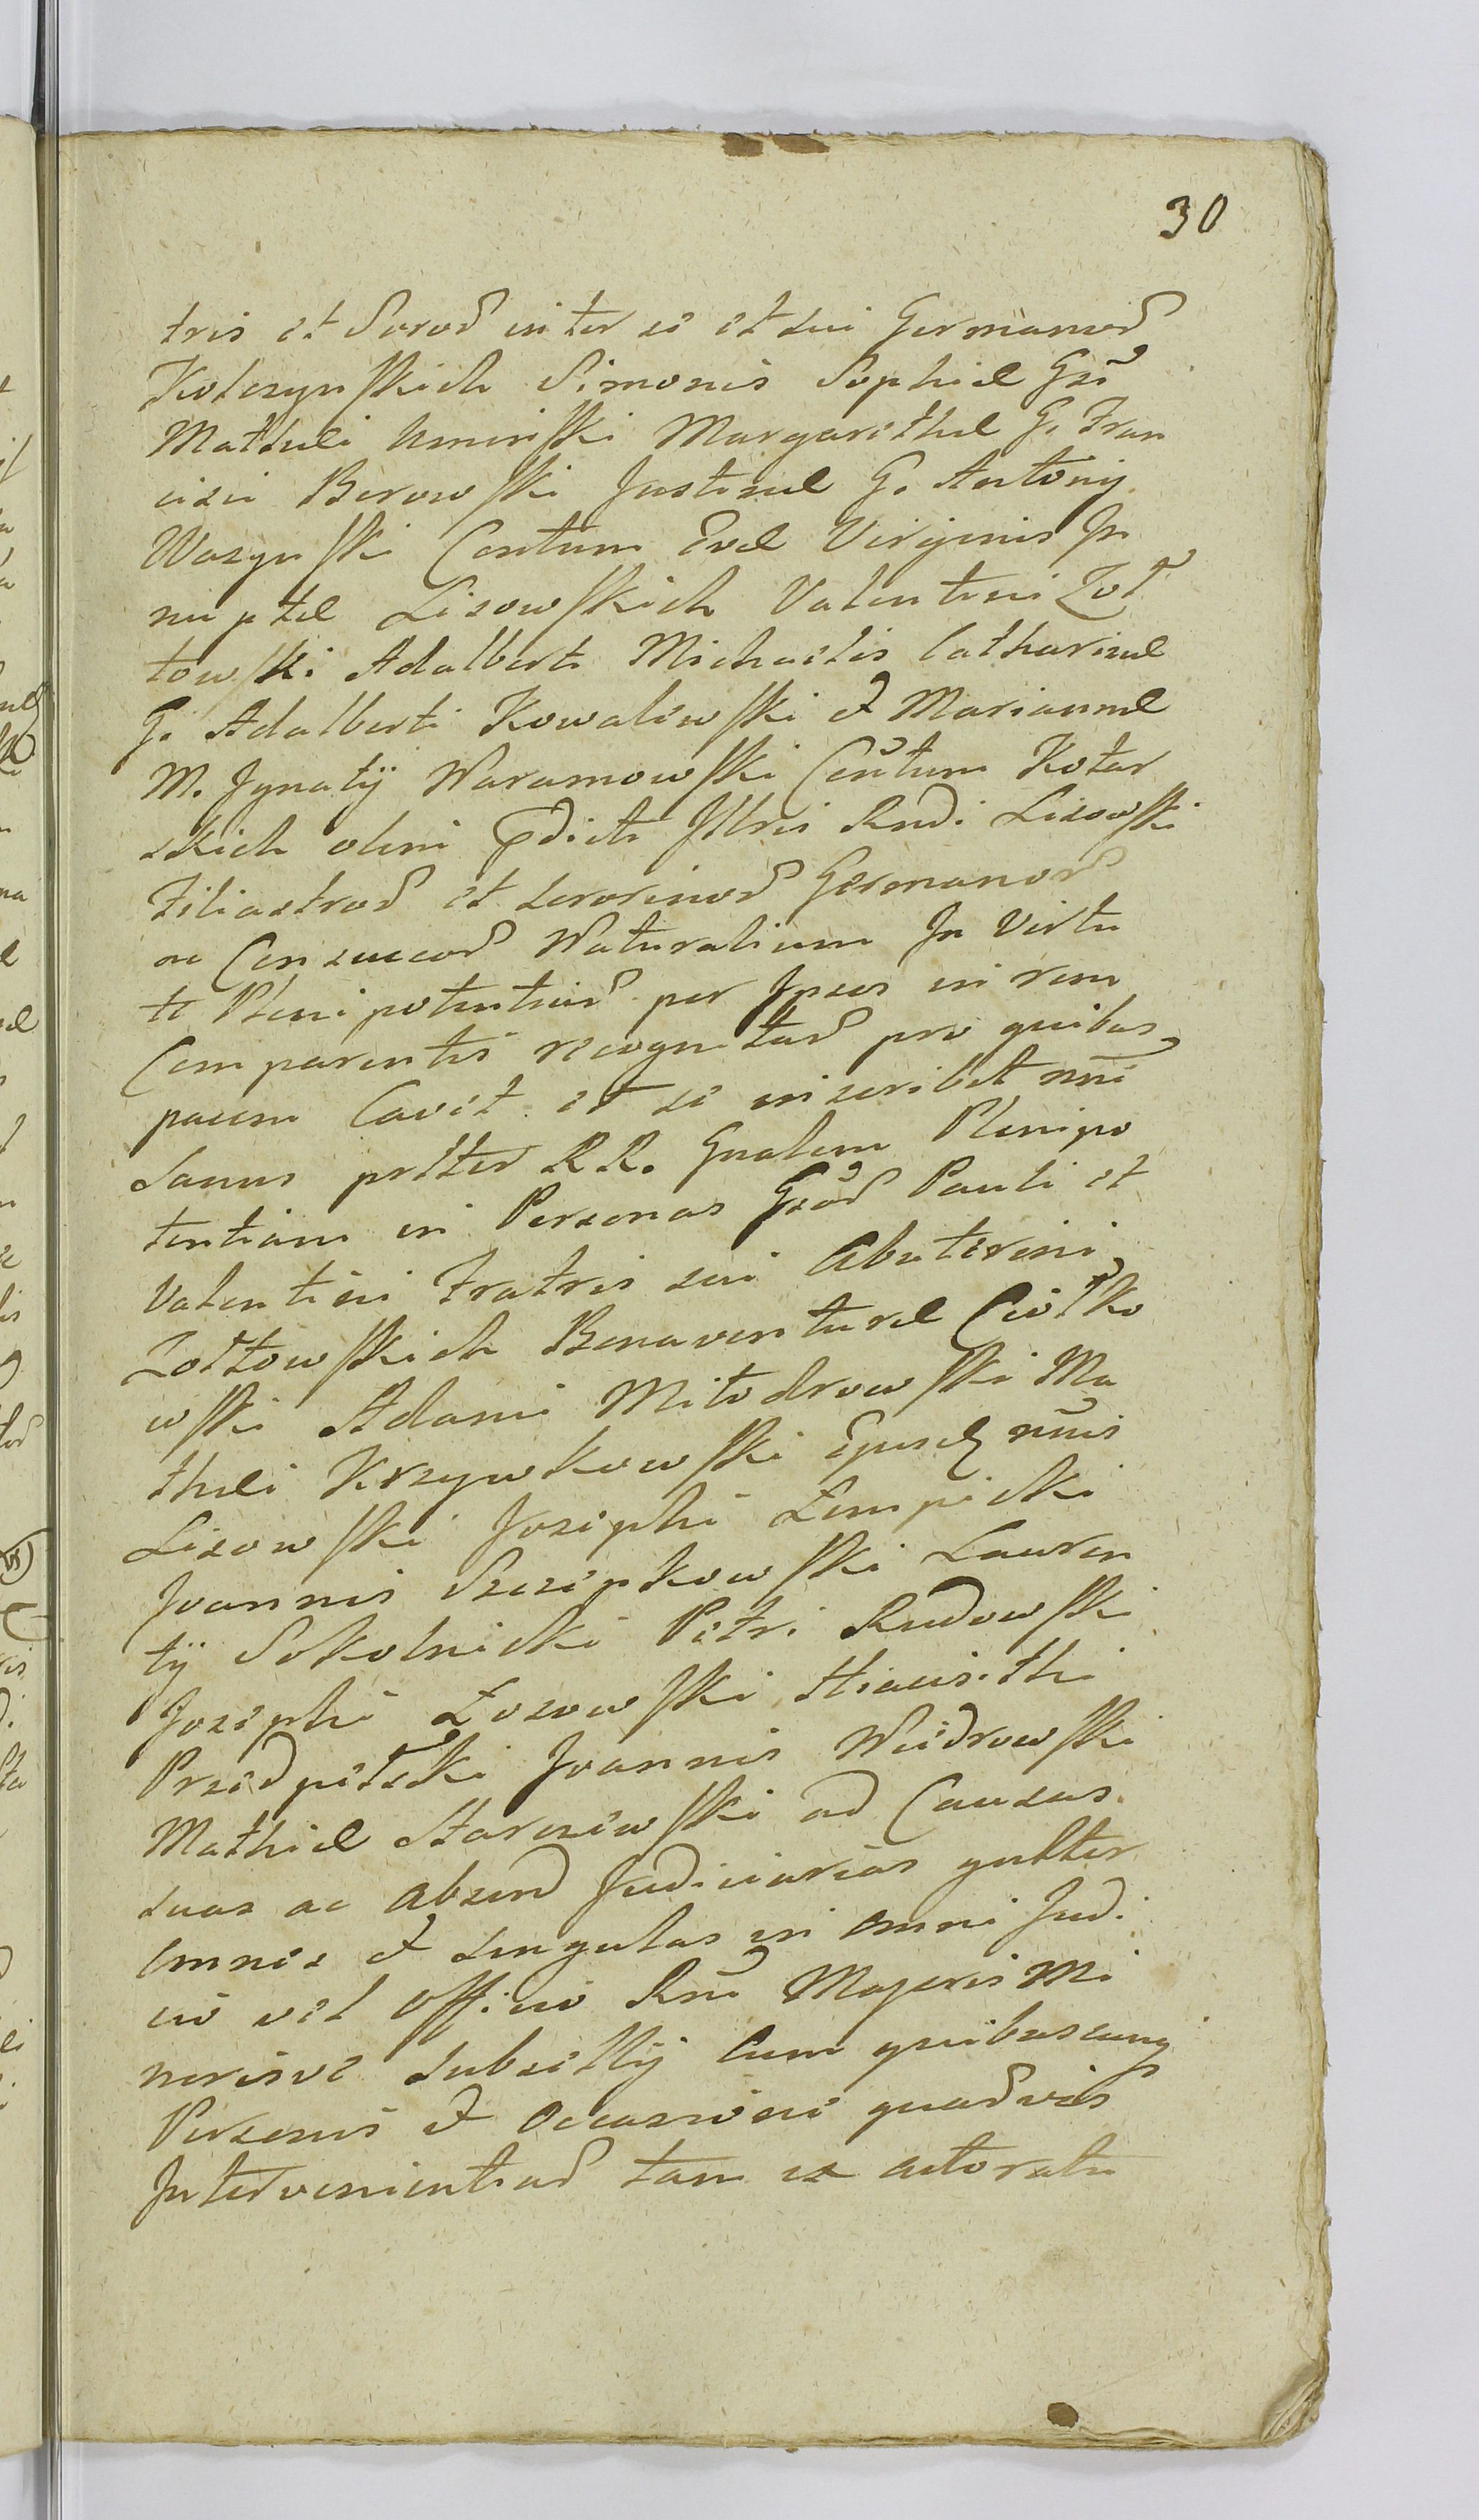 30
tris et Sorod inter se et sui Germanod
Kolczynskich Simonis Sophiæ Gsi
Mathæi Uminski Margarethæ G. Fran
cisci Borowski Justinæ G. Antonij
Wozynski Contum Evæ Virginis In
nuptæ Lisowskich Valentini Zoł
towski Adalberti Michaelis Catharinæ
G. Adalberti Kowalewski et Mariannæ
M. Ignatij Waramowski Contum Kotar
skich olim Pdicti Illris Rndi Lisowski
Filiastrod et Sororinod Germanor
ac Consuccod Naturalium In Virtu
te Plenipotentiad per Ipsos in rem
Comparentis recognitad pro quibus
pacem Cavet et se inscribet mni
Sanus præter RR. Gnalem Plenipo
tentiam in Personas Gsod Pauli et
Valentini Fratris sui Abuterini
Zołtowskich Bonaventuræ Ciołko
wski Adami Miłodrowski Ma
thæi Krzywkowski Ejusdq mnis
Lisowski Josephi Łempicki
Joannis Szczepkowski Lauren
tij Sokolnicki Petri Rudowski
Josephi Łosowski Hiacinthi
Przedpełski Joannis Wiidrowski
Mathiæ Starozewski ad Causas
suas ac absend Judiciarias gnlter
omnes et singulas in omni Judi
cio vel Officio Rni Majoris Mi
norisve Subsellij cum quibuscunq
Personis et occasione quadvis
Intervenientiad tam ex actoratu